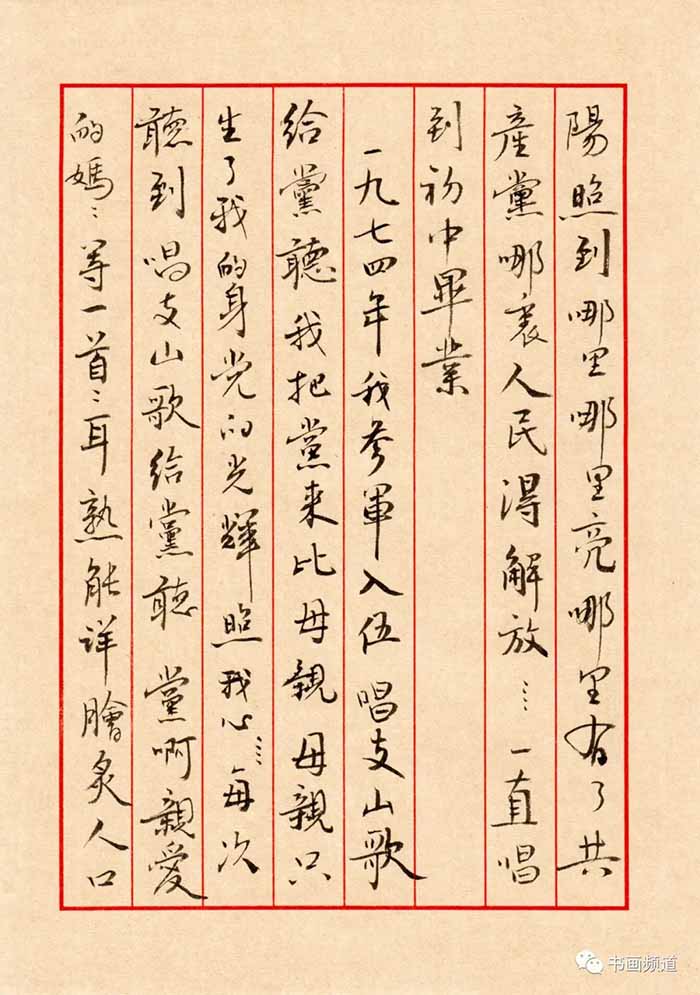 陽照到哪里哪里亮哪里有了共
產黨哪裏人民淂解放⋯一直唱
到初中畢業
一九七四年我参軍入伍唱支山歌
给黨聽我把黨来比母親母親只
生了我的身党的光輝照我心⋯每次
聽到唱支山歌给黨聽 黨啊親愛
的媽〻等一首〻耳熟能详膾炙人口
书画频道